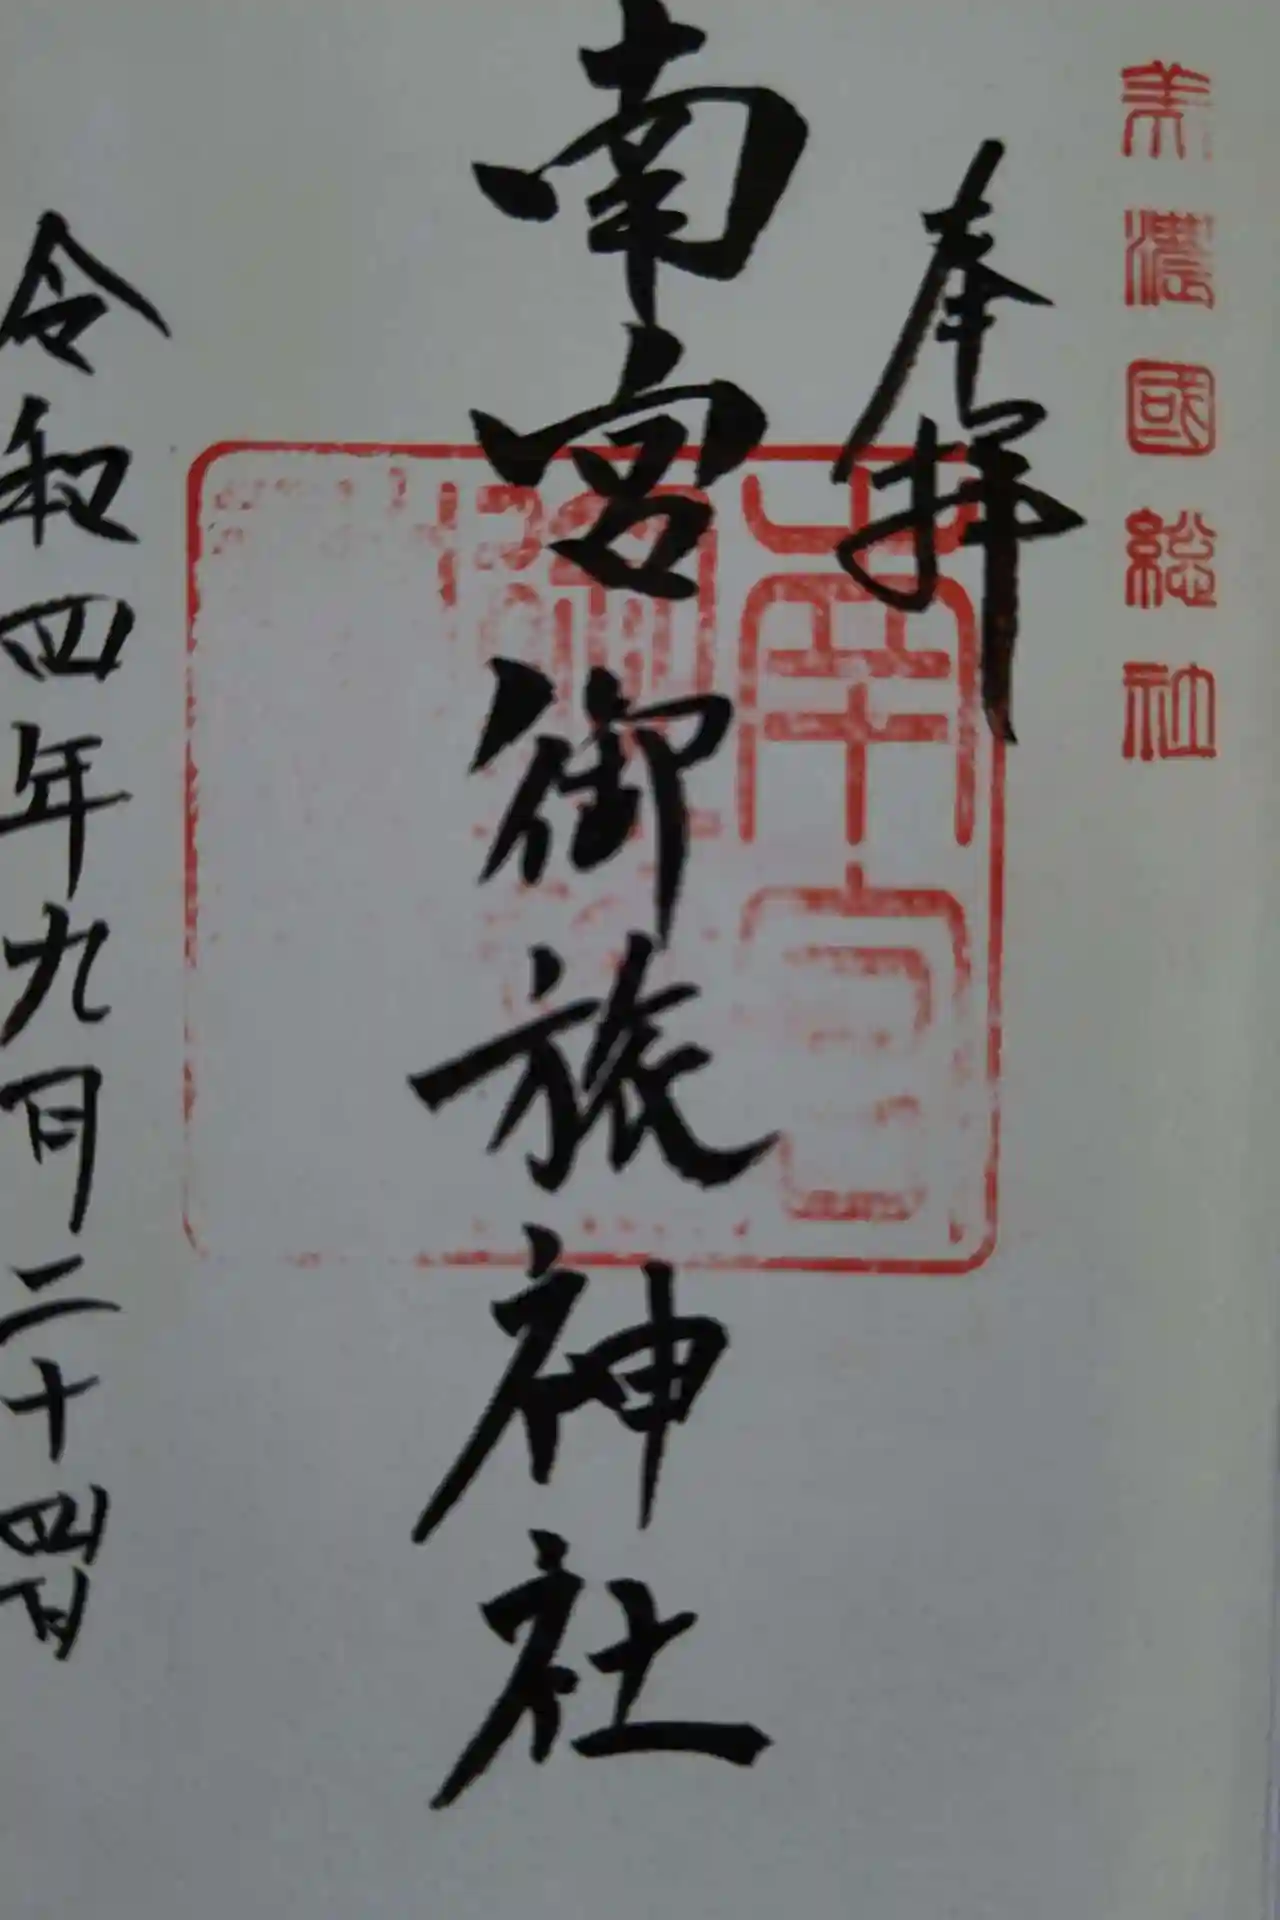 美濃國総社
奉拝
南宮御旅神社
南宮
令和四年九月二十四日